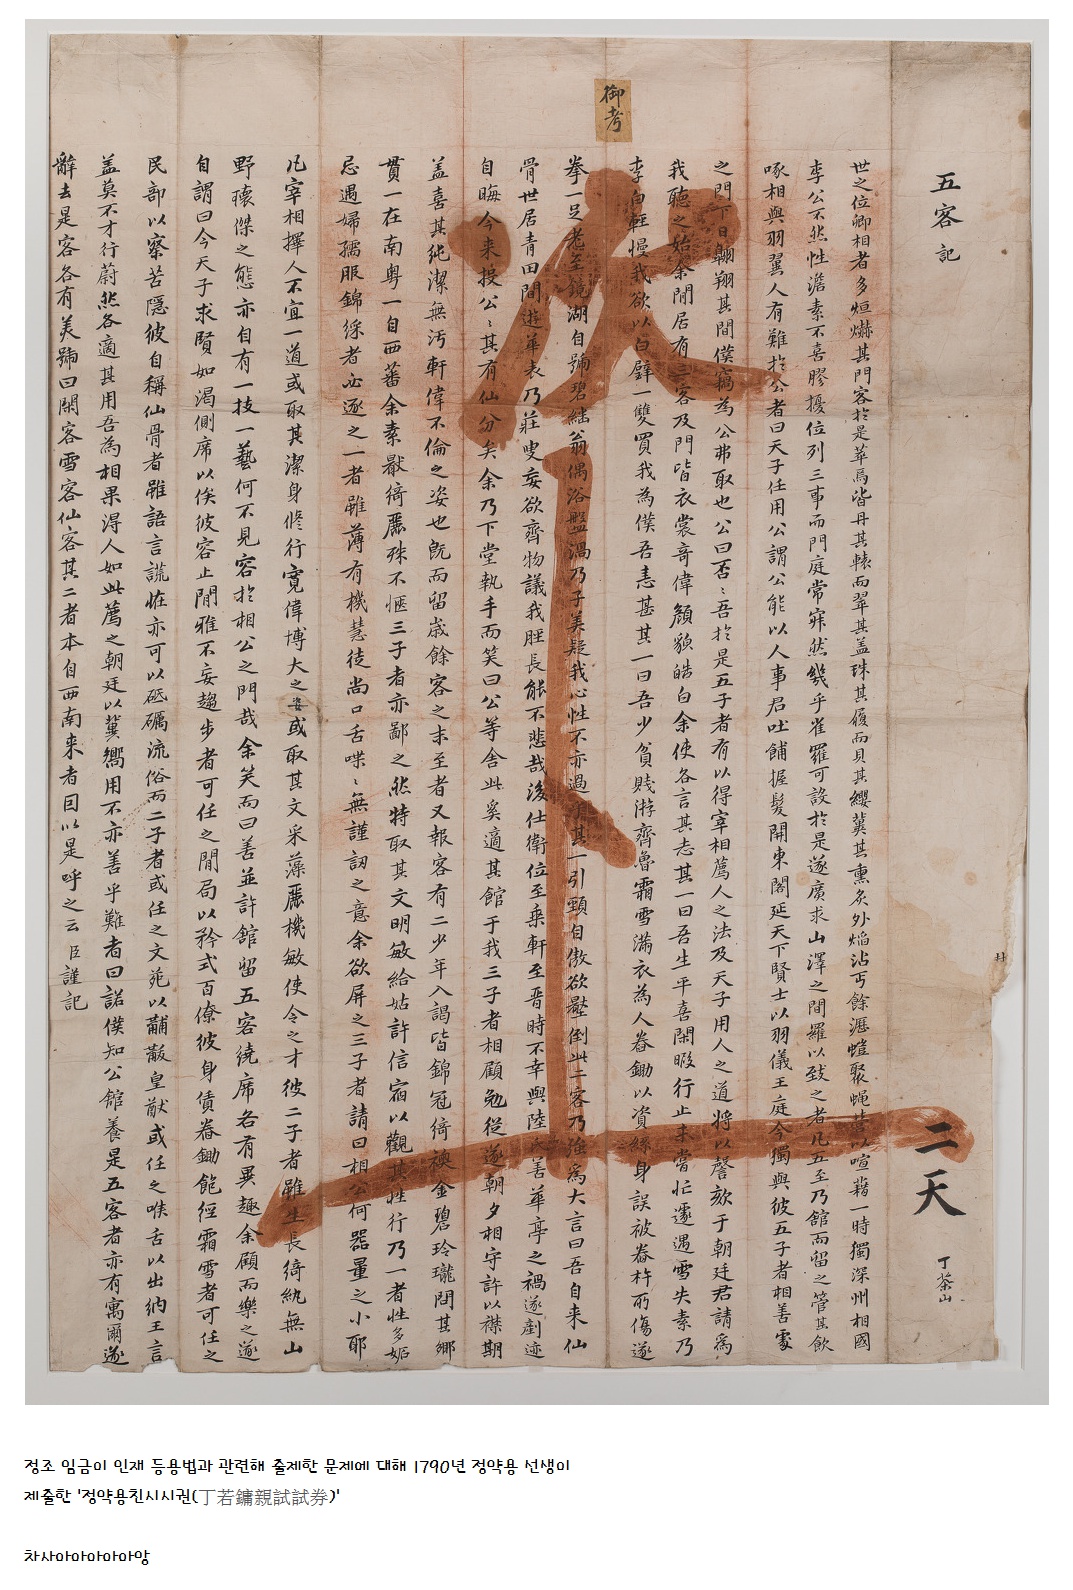 御考
五客記
二天
丁茶山
世之位卿相者多烜爀其門客於是華馬皆丹其轅而翠其盖珠其履而貝其纓冀其熏炙外焰沾丐餘瀝螘聚蝇営以喧藉一時獨深州相國
李公不然性澹素不喜膠擾位列三事而門庭常寂然幾乎雀羅可設於是遂廣求山澤之間羅以致之者凡五至乃館而留之管其飮
啄相與羽翼人有難於公者曰天子任用公謂公能以人事君吐餔握髮開東閤延天下賢士以羽儀王庭今獨與彼五子者相善處
之門下日翱翔其間僕竊為公弗取也公曰否〻吾於是五子者有以得宰相薦人之法及天子用人之道將以謦欬于朝廷君請爲
我聽之始余閒居有三客及門皆衣裳奇偉顔貌皓白余使各言其志其一曰吾生平喜閑暇行止未嘗忙遽遇雪失素乃
李白輕慢我欲以白璧一雙買我為僕吾恚甚其一曰吾少貧賤游齊魯霜雪滿衣為人舂鋤以資身誤被舂杵所傷遂
拳一足老至鏡湖自號碧翁偶浴盤渦乃子美疑我心性不亦過其一引頸自傲欲壓倒此二客乃強爲大言曰吾自来仙
骨世居青田間遊華表乃莊叟妄欲齊物議我脛長能不悲哉後仕衛位至乘軒至晋時不幸與陸氏善華亭之禍遂剷迹
自晦今来投公〻其有仙分矣余乃下堂執手而笑曰公等舍此奚適其館于我三子者相顧勉從遂朝夕相守許以襟期
盖喜其純潔無汚軒偉不倫之姿也旣而留歲餘客之未至者又報客有二少年入謁皆錦冠綺襖金碧玲瓏問其鄉
貫一在南粤一自西蕃余素厭綺麗殊不愜三子者亦鄙之然特取其文明敏給姑許信宿以觀其性行乃一者性多妬
忌遇婦孺服錦綵者必逐之一者雖薄有機慧徒尚口舌喋〻無謹訒之意余欲屏之三子者請曰相公何器量之小耶
凡宰相擇人不宜一道或取其潔身修行寛偉博大之姿或取其文采藻麗機敏使令之才彼二子者雖生長綺紈無山
野瓌傑之態亦自有一技一藝何不見容於相公之門哉余笑而曰善並許館留五客繞席各有異趣余顧而樂之遂
自謂曰今天子求賢如渴側席以俟彼容止閒雅不妄趨步者可任之閒局以矜式百僚彼身債舂鋤飽經霜雪者可任之
民部以察苦隱彼自稱仙骨者雖語言謊怪亦可以砥礪流俗而二子者或任之文苑以黼黻皇猷或任之喉舌以出納王言
盖莫不才行蔚然各適其用吾為相果得人如此薦之朝廷以冀嚮用不亦善乎難者曰諾僕知公館養是五客者亦有寓爾遂
辭去是客各有美號曰閑客雪客仙客其二者本自西南来者因以是呼之云 臣謹記
정조 임금이 인재 등용법과 관련해 출제한 문제에 대해 1790년 정약용 선생이
제출한 '정약용친시시권(丁若鏞親試試券)'
차사아아아아아앙